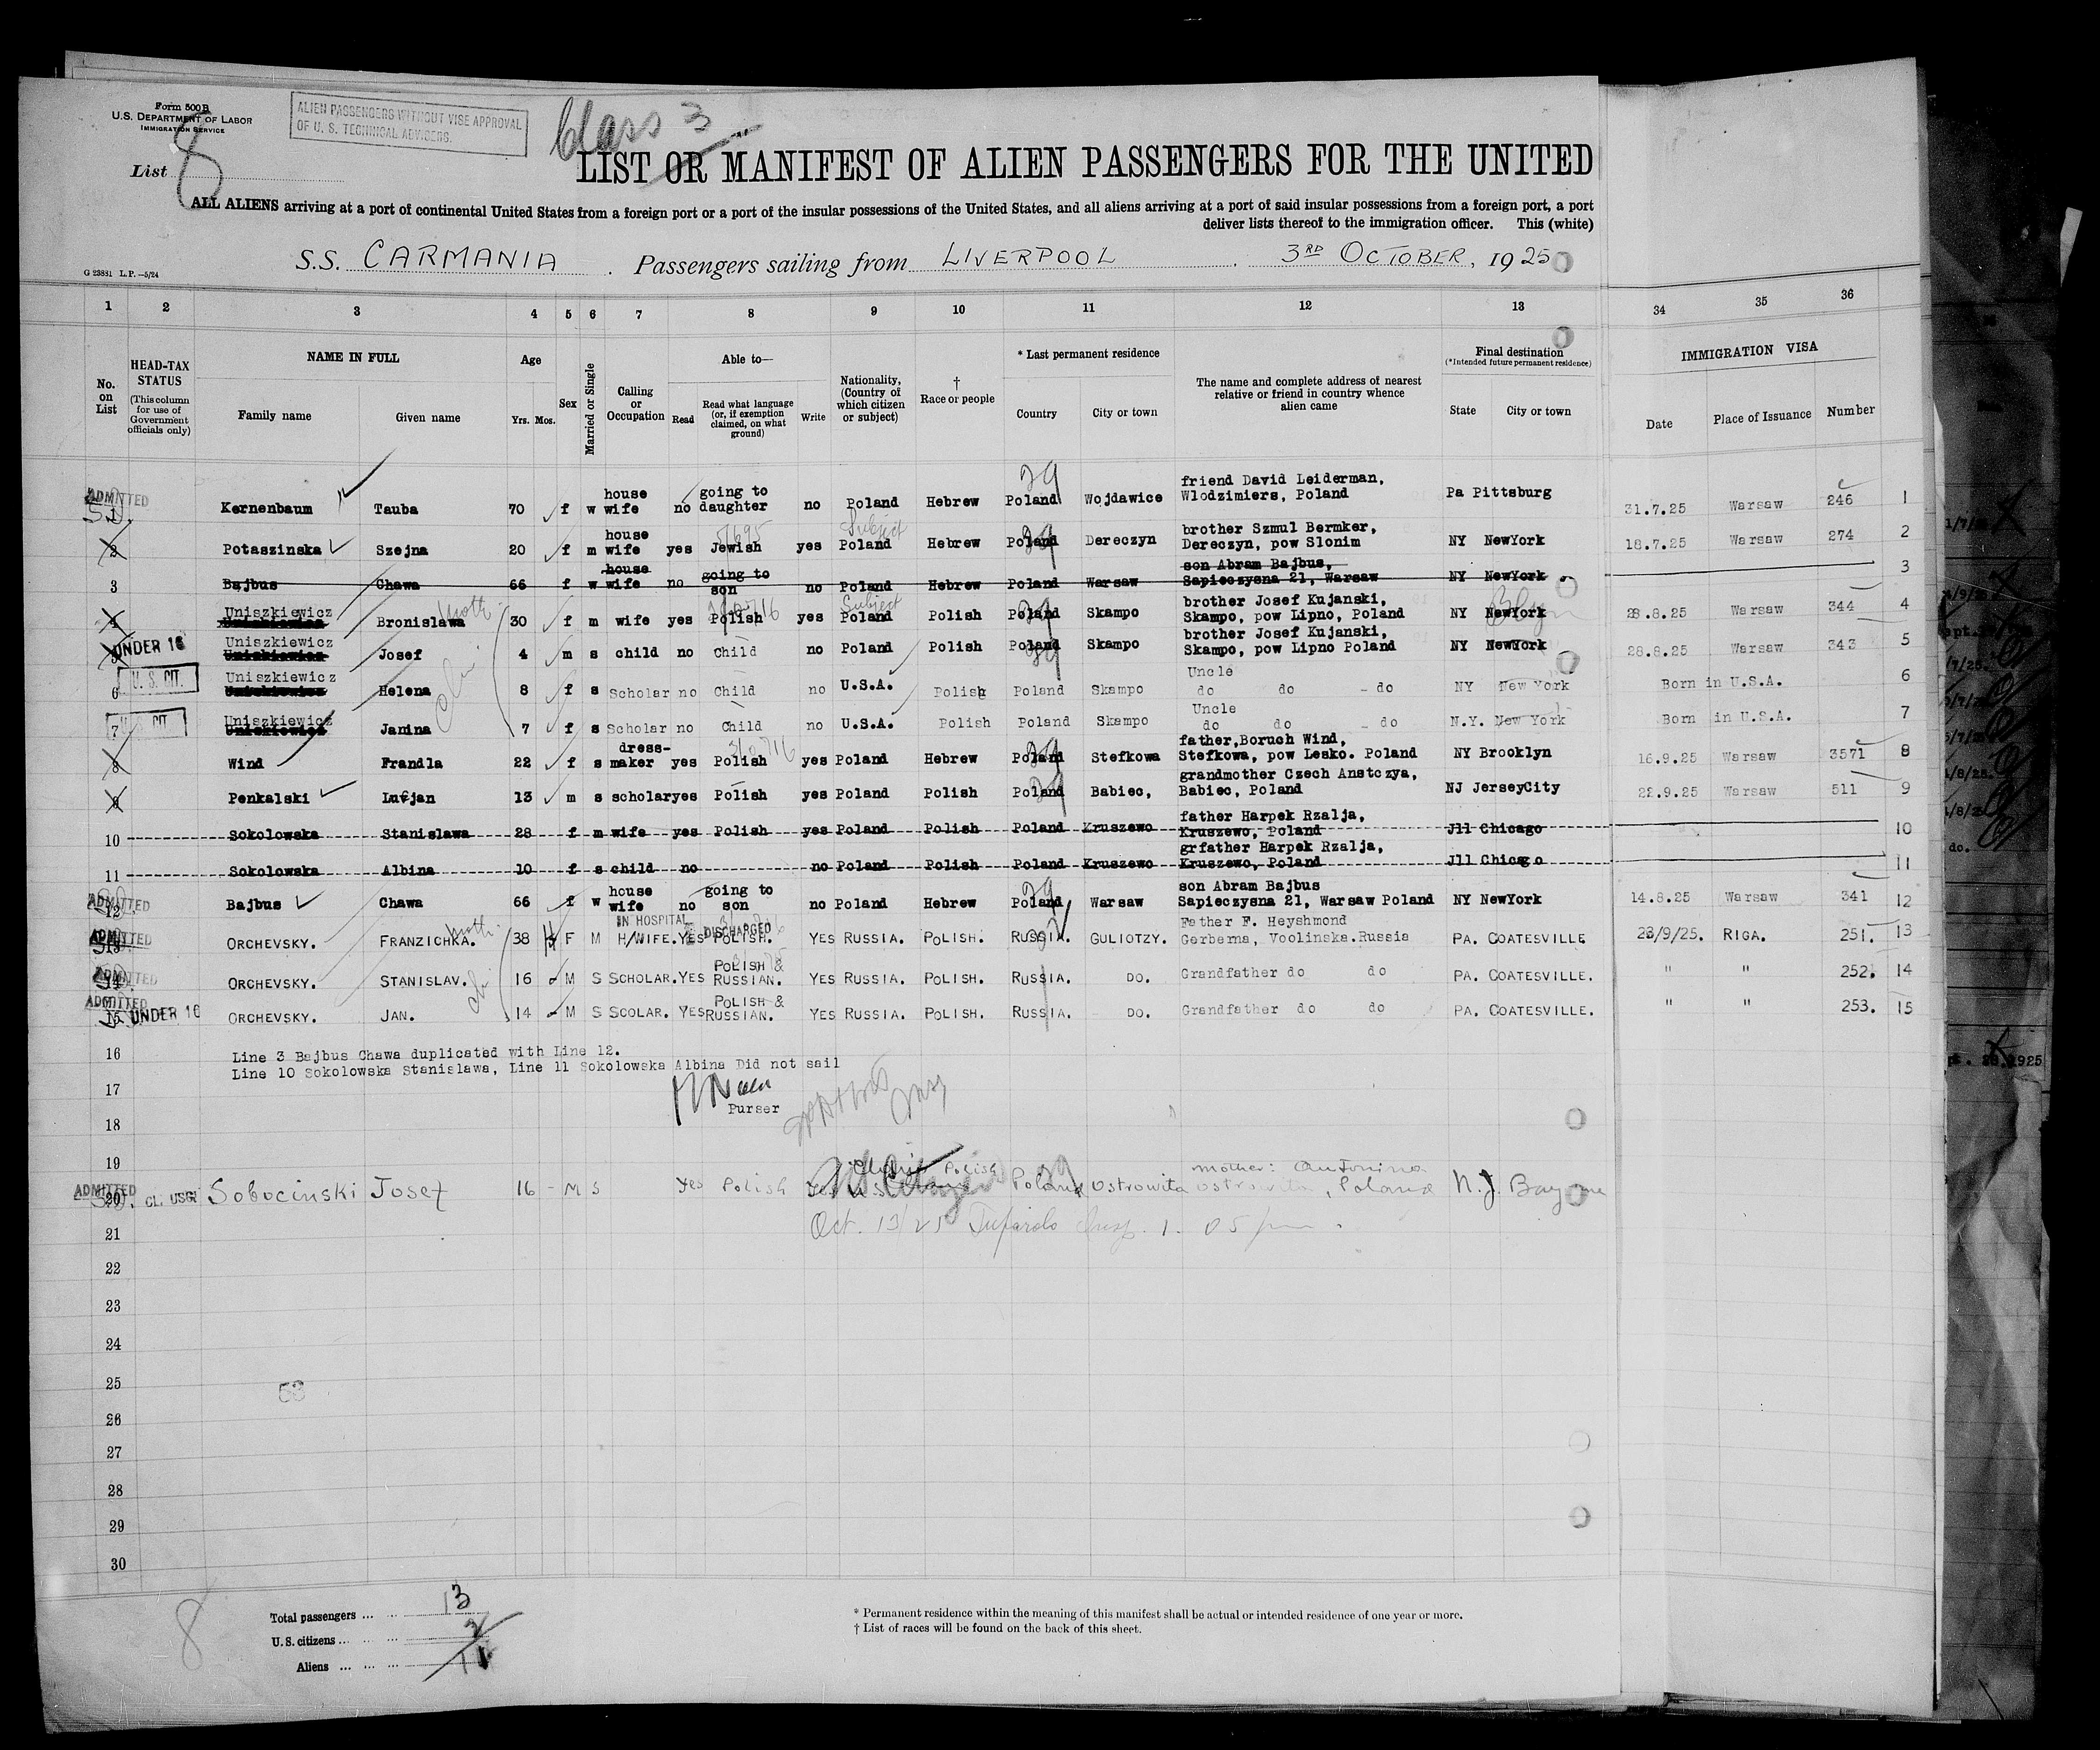 Form 500 B
U.S. DEPARTMENT OF LABOR
IMMIGRATION SERVICE
ALIEN PASSENGERS WITHOUT VISE APPROVAL
OF U. S. TECHNICAL ADVISERS.
Class 3
List 8
LIST OR MANIFEST OF ALIEN PASSENGERS FOR THE UNITED
ALL ALIENS arriving at a port of continental United States from a foreign port or a port of the insular possessions of the United States, and all aliens arriving at a port of said insular possessions from a foreign port, a port
deliver lists thereof to the immigration officer. This (white)
G 23881 L.P.—5/24
S.S. CARMANIA . Passengers sailing from LIVERPOOL . 3RD OCTOBER, 1925
1 2 3 4 5 6 7 8 9 10 11 12 13 34 35 36
No. on List
HEAD-TAX STATUS
(This column for use of Government officials only)
NAME IN FULL
Family name Given name
Age
Yrs. Mos.
Sex
Married or Single
Calling or Occupation
Able to—
Read
Read what language (or, if exemption claimed, on what ground)
Write
Nationality, (Country of which citizen or subject)
† Race or people
* Last permanent residence
Country City or town
The name and complete address of nearest relative or friend in country whence alien came
Final destination
(*Intended future permanent residence)
State City or town
IMMIGRATION VISA
Date Place of Issuance Number
ADMITTED 1 Kernenbaum Tauba 70 f w house wife no going to daughter no Poland Hebrew Poland Wojdawice friend David Leiderman, Wlodzimiers, Poland Pa Pittsburg 31.7.25 Warsaw 246 1
2 Potaszinska Szejna 20 f m house wife yes Jewish yes Poland Subject Hebrew Poland Dereczyn brother Szmul Bermker, Dereczyn, pow Slonim NY NewYork 18.7.25 Warsaw 274 2
3 Bajbus Chawa 66 f w house wife no going to son no Poland Hebrew Poland Warsaw son Abram Bajbus, Sapieczysna 21, Warsaw NY NewYork 3
4 Uniszkiewicz Bronislawa moth. 30 f m wife yes Polish yes Poland Subject Polish Poland Skampo brother Josef Kujanski, Skampo, pow Lipno, Poland NY NewYork 28.8.25 Warsaw 344 4
UNDER 16 5 Uniszkiewicz Josef 4 m s child no Child no Poland Polish Poland Skampo brother Josef Kujanski, Skampo, pow Lipno Poland NY NewYork 28.8.25 Warsaw 343 5
U. S. CIT. 6 Uniszkiewicz Helena 8 f s Scholar no Child no U.S.A. Polish Poland Skampo Uncle do do do NY New York Born in U.S.A. 6
U. S. CIT. 7 Uniszkiewicz Janina 7 f s Scholar no Child no U.S.A. Polish Poland Skampo Uncle do do do N.Y. New York Born in U.S.A. 7
8 Wind Frandla 22 f s dress-maker yes Polish yes Poland Hebrew Poland Stefkowa father,Boruch Wind, Stefkowa, pow Lesko. Poland NY Brooklyn 16.9.25 Warsaw 3571 8
9 Penkalski Lucjan 13 m s scholar yes Polish yes Poland Polish Poland Babiec, grandmother Czech Anstczya, Babiec, Poland NJ JerseyCity 22.9.25 Warsaw 511 9
10 Sokolowska Stanislawa 28 f m wife yes Polish yes Poland Polish Poland Kruszewo father Harpek Rzalja, Kruszewo, Poland Jll Chicago 10
11 Sokolowska Albina 10 f s child no no Poland Polish Poland Kruszewo grfather Harpek Rzalja, Kruszewo, Poland Jll Chicago 11
ADMITTED 12 Bajbus Chawa 66 f w house wife no going to son no Poland Hebrew Poland Warsaw son Abram Bajbus Sapieczysna 21, Warsaw Poland NY NewYork 14.8.25 Warsaw 341 12
IN HOSPITAL DISCHARGED
ADMITTED 13 ORCHEVSKY. FRANZICHKA. moth. 38 F M H/WIFE. YES POLISH. YES RUSSIA. POLISH. RUSSIA. GULIOTZY. Father F. Heyshmond Gerberna, Voolinska.Russia PA. COATESVILLE 23/9/25. RIGA. 251. 13
ADMITTED 14 ORCHEVSKY. STANISLAV. 16 M S SCHOLAR. YES POLISH & RUSSIAN. YES RUSSIA. POLISH. RUSSIA. DO. Grandfather do do PA. COATESVILLE. " " 252. 14
ADMITTED 15 UNDER 16 ORCHEVSKY. JAN. 14 M S SCOLAR. YES POLISH & RUSSIAN. YES RUSSIA. POLISH. RUSSIA. DO. Grandfather do do PA. COATESVILLE. " " 253. 15
16 Line 3 Bajbus Chawa duplicated with Line 12.
Line 10 Sokolowska Stanislawa, Line 11 Sokolowska Albina Did not sail
17
Purser
18
19
ADMITTED 20 CL. USGR Sobocinski Josef 16 - M S Yes Polish Yes Polish Poland Ostrowita mother: Antonina Ostrowita, Poland N.J. Bayonne
21 Oct. 13/25 Insp. 1.05 pm.
22
23
24
25
58
26
27
28
29
30
8
Total passengers ... ... 13
U.S. citizens ... ... ... 2
Aliens ... ... ... 11
* Permanent residence within the meaning of this manifest shall be actual or intended residence of one year or more.
† List of races will be found on the back of this sheet.